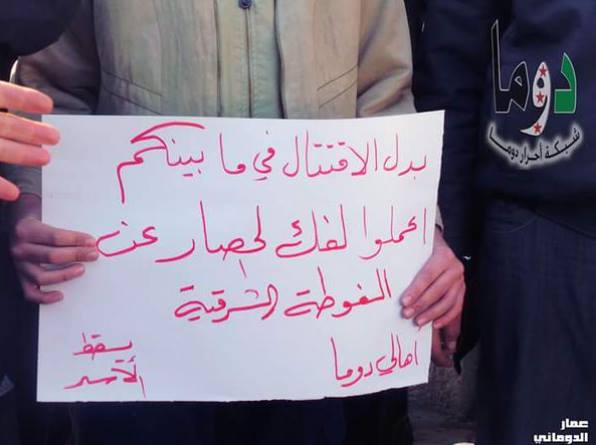 بدل الاقتتال في ما بينكم
اعملوا لفك الحصار عن
الغوطة الشرقية
اهالي دوما
يسقط
الأسد
دوما
شبكة أحرار دوما
عمار
الدوماني